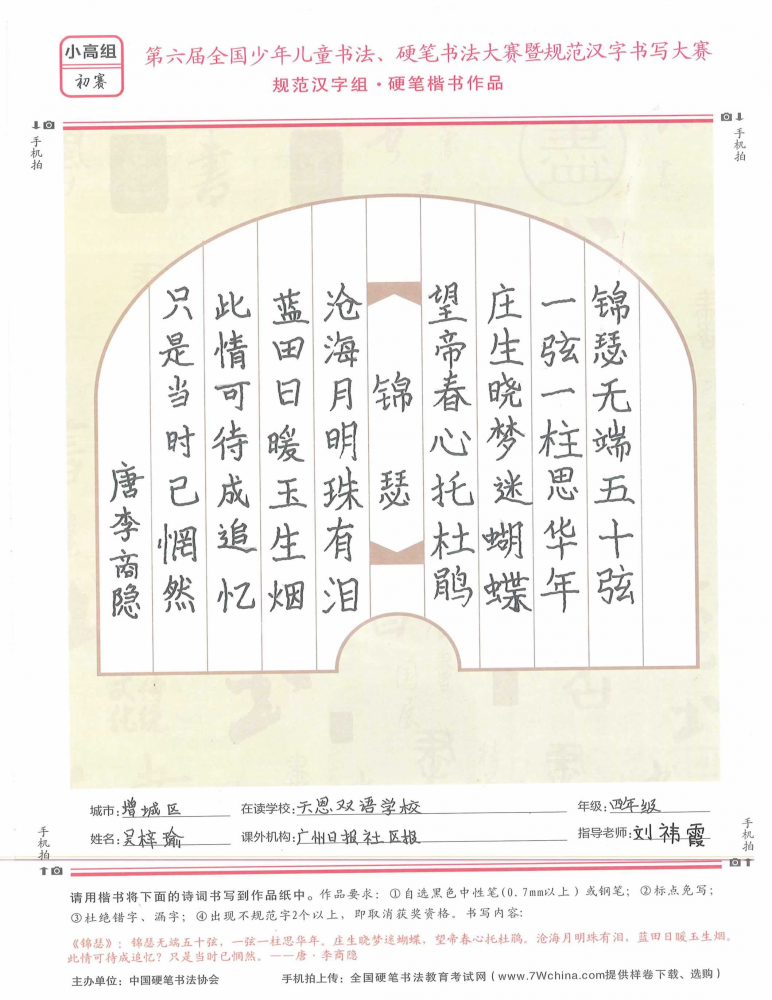 小高组
初赛
第六届全国少年儿童书法、硬笔书法大赛暨规范汉字书写大赛
规范汉字组·硬笔楷书作品
手机拍
手机拍
锦瑟无端五十弦
一弦一柱思华年
庄生晓梦迷蝴蝶
望帝春心托杜鹃
锦瑟
沧海月明珠有泪
蓝田日暖玉生烟
此情可待成追忆
只是当时已惘然
唐李商隐
城市:增城区 在读学校:天恩双语学校 年级:四年级
姓名:吴梓瑜 课外机构:广州日报社区报 指导老师:刘祎霞
手机拍
手机拍
请用楷书将下面的诗词书写到作品纸中。作品要求：①自选黑色中性笔(0.7mm以上)或钢笔；②标点免写；
③杜绝错字、漏字；④出现不规范字2个以上，即取消获奖资格。书写内容:
《锦瑟》：锦瑟无端五十弦，一弦一柱思华年。庄生晓梦迷蝴蝶，望帝春心托杜鹃。沧海月明珠有泪，蓝田日暖玉生烟。
此情可待成追忆？只是当时已惘然。——唐·李商隐
主办单位：中国硬笔书法协会 手机拍上传：全国硬笔书法教育考试网（www.7Wchina.com提供样卷下载、选购）